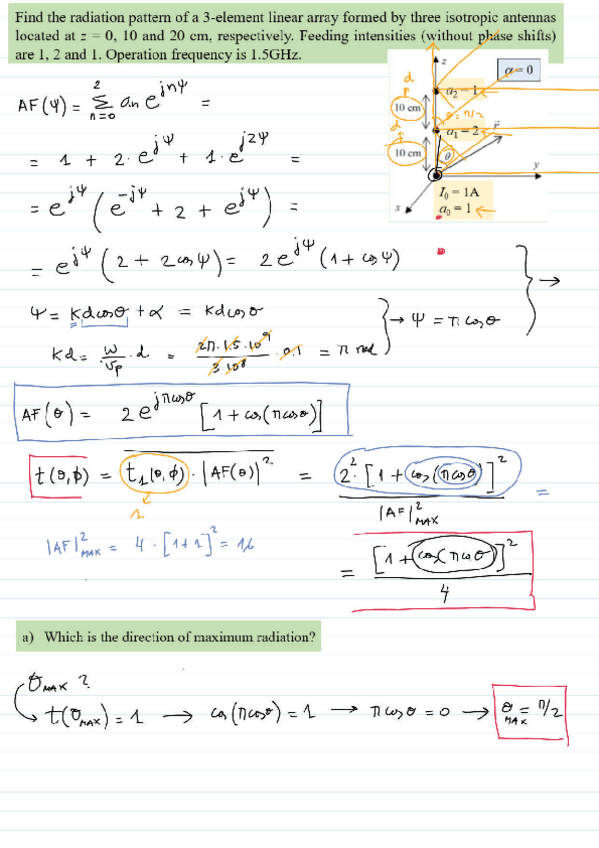 Find the radiation pattern of a 3-element linear array formed by three isotropic antennas
located at z = 0, 10 and 20 cm, respectively. Feeding intensities (without phase shifts)
are 1, 2 and 1. Operation frequency is 1.5GHz.
z
α = 0
d
a₂ = 1
10 cm
θ = π/2
d
a₁ = 2
10 cm
θ
r
y
x
I₀ = 1A
a₀ = 1
AF(ψ) = Σ_{n=0}^{2} aₙ e^{jnψ} =
= 1 + 2·e^{jψ} + 1·e^{j2ψ} =
= e^{jψ} (e^{-jψ} + 2 + e^{jψ}) =
= e^{jψ} (2 + 2cosψ) = 2e^{jψ} (1 + cosψ)
ψ = kdcosθ + α = kdcosθ
→ ψ = π cosθ
kd = w/vp · d = 2π·1.5·10⁹/3·10⁸ · 0.1 = π rad
AF(θ) = 2e^{jπcosθ} [1 + cos(πcosθ)]
t(θ,ϕ) = t₁(θ,ϕ)·|AF(θ)|² = 2²·[1 + cos(πcosθ)]² / |AF|²MAX =
1
|AF|²MAX = 4·[1+1]² = 16
= [1 + cos(πcosθ)]² / 4
a) Which is the direction of maximum radiation?
θMAX ?
t(θMAX) = 1 → cos(πcosθ) = 1 → πcosθ = 0 → θMAX = π/2